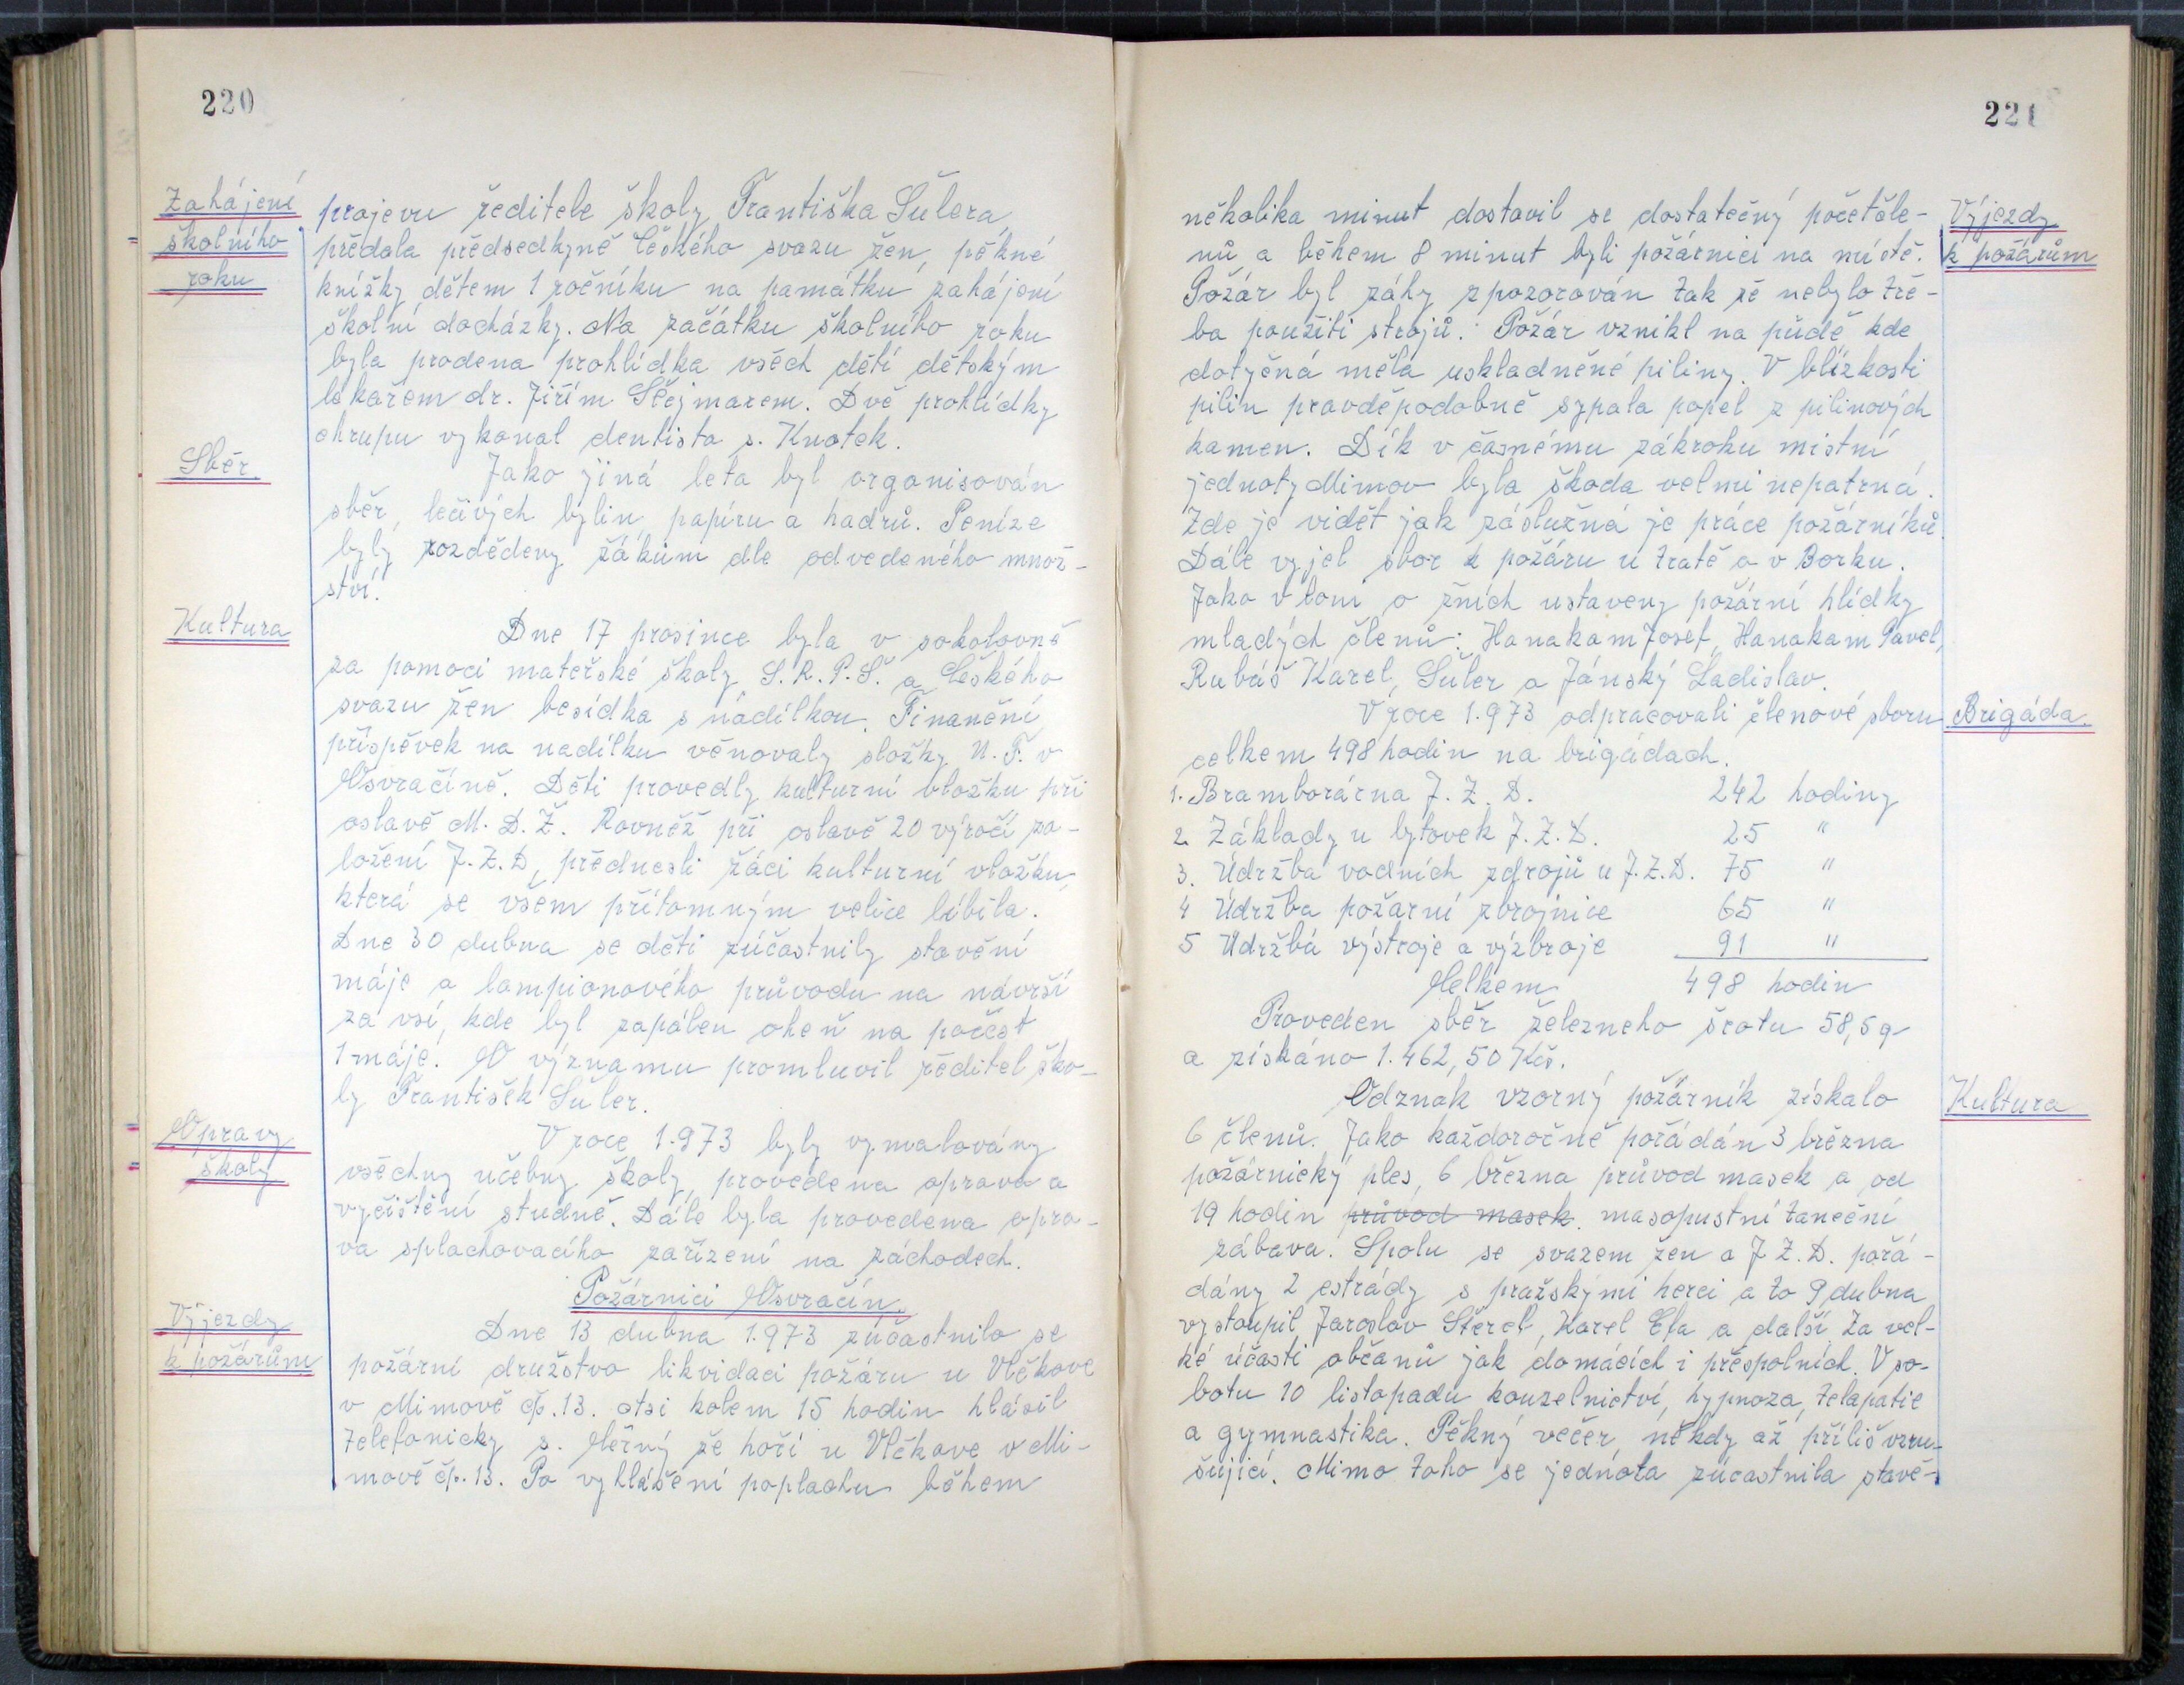 220
Zahájení
školního
roku
projevu ředitele školy Františka Šulera,
předala předsedkyně Českého svazu žen, pěkné
knížky dětem 1 ročníku na památku zahájení
školní docházky. Na začátku školního roku
byla prodena prohlídka všech dětí dětským
lékařem dr. Jiřím Štejmarem. Dvě prohlídky
chrupu vykonal dentista s. Knotek.
Sběr.
Jako jiná leta byl organisován
sběr, lečivých bylin, papíru a hadrů. Peníze
byly rozděděny žákům dle odvedeného množ-
ství.
Kultura
Dne 17 prosince byla v sokolovně
za pomoci mateřské školy, S.R.P.Š. a Českého
svazu žen besídka s nadílkou. Finanční
příspěvek na nadílku věnovaly složky N.F. v
Osvračíně. Děti provedly kulturní vložku při
oslavě M.D.Ž. Rovněž při oslavě 20 výročí za-
ložení J.Z.D., přednesli žáci kulturní vložku,
která se všem přítomným velice líbila.
Dne 30 dubna se děti zúčastnily stavění
máje a lampionového průvodu na návrší
za vsí, kde byl zapálen oheň na počest
1 máje. O významu promluvil ředitel ško-
ly František Šuler.
Opravy
školy
V roce 1.973 byly vymalovány
všechny učebny školy, provedena oprava a
vyčištění studně. Dále byla provedena opra-
va splachovacího zařízení na záchodech.
Požárníci Osvračín.
Výjezdy
k požárům
Dne 13 dubna 1.973 zúčastnilo se
požární družstvo likvidaci požáru u Vlčkove
v Mimově čp. 13. Asi kolem 15 hodin hlásil
telefonicky s. Černý že hoří u Vlčkove v Mi-
mově čp. 13. Po vyhlášení poplachu během
221
několika minut dostavil se dostatečný početčle-
nů a během 8 minut byli požárníci na místě.
Výjezdy
k požárům
Požár byl záhy zpozorován tak že nebylo tře-
ba použití strojů. Požár vznikl na půdě kde
dotyčná měla uskladněné piliny. V blízkosti
pilin pravděpodobně sypala popel z pilinových
kamen. Dík v časnému zákroku místní
jednoty Mimov byla škoda velmi nepatrná.
Zde je vidět jak záslužná je práce požárníků.
Dále vyjel sbor k požáru u tratě a v Borku.
Jako v loni o žních ustaveny požární hlídky
mladých členů: Hanakam Josef, Hanakam Pavel,
Rubáš Karel, Šuler a Jánský Ladislav.
V roce 1.973 odpracovali členové sboru
Brigáda.
celkem 498 hodin na brigádach.
1. Bramborárna J.Z.D. 242 hodiny
2. Základy u bytovek J.Z.D. 25 "
3. Údržba vodních zdrojů u J.Z.D. 75 "
4 Údržba požární zbrojnice 65 "
5 Údržbá výstroje a výzbroje 91 "
Celkem 498 hodin
Proveden sběr železneho šrotu 58,5 q
a získáno 1.462,50 Kčs.
Odznak vzorný požárník získalo
Kultura
6 členů. Jako každoročně pořádán 3 března
požárnický ples, 6 března průvod masek a od
19 hodin průvod masek. masopustní taneční
zábava. Spolu se svazem žen a J.Z.D. pořá-
dány 2 estrády s pražskými herci a to 9 dubna
vystoupil Jaroslav Štercl, Karel Efa a další. Za vel-
ké účasti občanů jak domácích i přespolních. V so-
botu 10 listopadu kouzelnictví, hypnoza, telapatie
a gymnastika. Pěkný večer, někdy až příliš vzru-
šující. Mimo toho se jednota zúčastnila stavě-